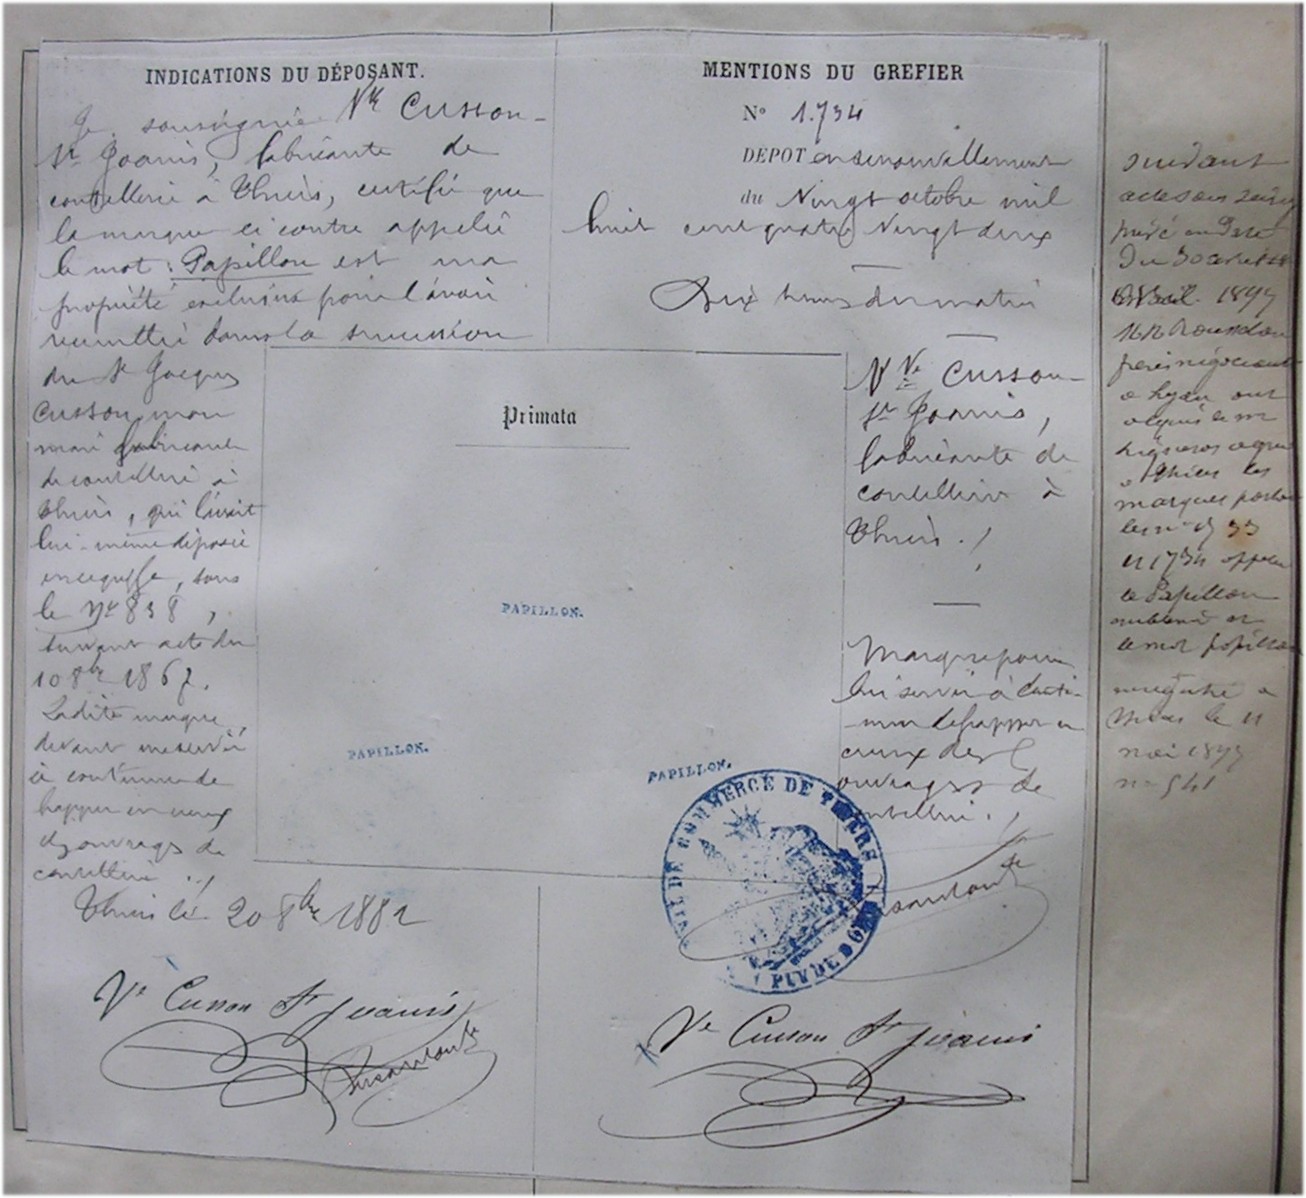 INDICATIONS DU DÉPOSANT.
Je soussignée Vve Cusson-
St Joanis, fabricante de
coutellerie à Thiers, certifie que
la marque ci contre appelée
le mot : Papillon est ma
propriété exclusive pour l'avoir
recueillie dans la succession
du Sr Jacques
Cusson mon
mari fabricant
de coutellerie à
Thiers, qui l'avait
lui-même déposée
au greffe, sous
le No 838,
suivant acte du
10 8bre 1867.
Ladite marque
devant me servir
à continuer de
frapper en creux
des ouvrages de
coutellerie ./
Thiers le 20 8bre 1882
Ve Cusson St Joanis
MENTIONS DU GREFIER
No 1.734
DÉPOT en renouvellement
du Vingt octobre mil
huit cent quatre Vingt deux
Dix heures du matin
Primata
PAPILLON.
PAPILLON.
PAPILLON.
Vve Cusson-
St Joanis,
fabricante de
coutellerie à
Thiers ./
Marque pour
lui servir à conti-
-nuer de frapper en
creux des
ouvrages de
coutellerie ./
DE COMMERCE DE THIERS
PUY DE DOME
Ve Cusson St Joanis
suivant
acte sous seing
privé en date
du
Avril 1899
frères négociants
a Lyon ont
acquis de Mr
a Thiers les
marques portant
les no 1733
et 1734 appelées
le Papillon
et
le mot papillon
enregistré a
Thiers le 11
mai 1899
no 541